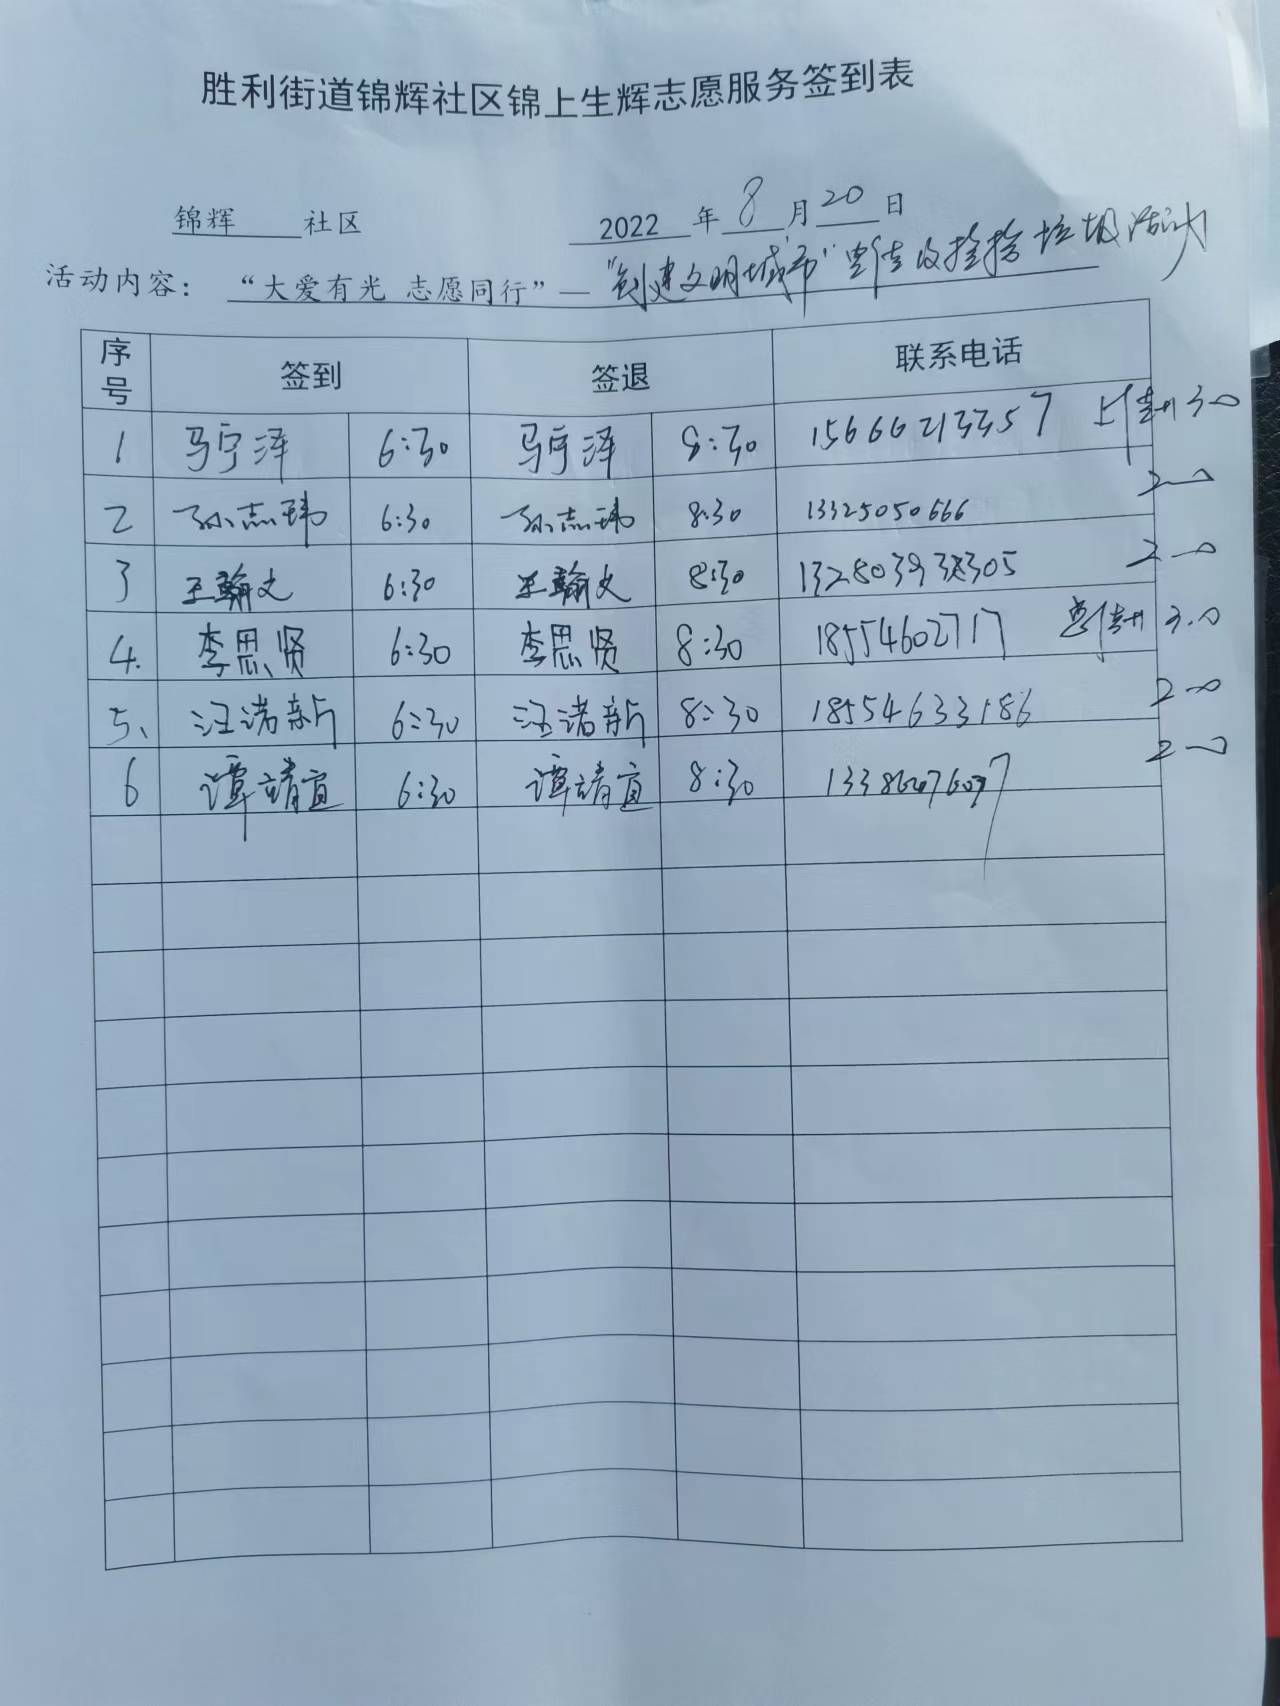 胜利街道锦辉社区锦上生辉志愿服务签到表
锦辉 社区 2022 年 8 月 20 日
活动内容： “大爱有光 志愿同行”— “创建文明城市”宣传及捡拾垃圾活动
序号 签到 签退 联系电话
1 马宁泽 6:30 马宁泽 8:30 15666213357 3.0
2 孙志玮 6:30 孙志玮 8:30 13325050666 2.0
3 王翰文 6:30 王翰文 8:30 2.0
4. 李思贤 6:30 李思贤 8:30 18554602717 3.0
5、 汪诺新 6:30 汪诺新 8:30 18554633186 2.0
6 谭靖宜 6:30 谭靖宜 8:30 2.0